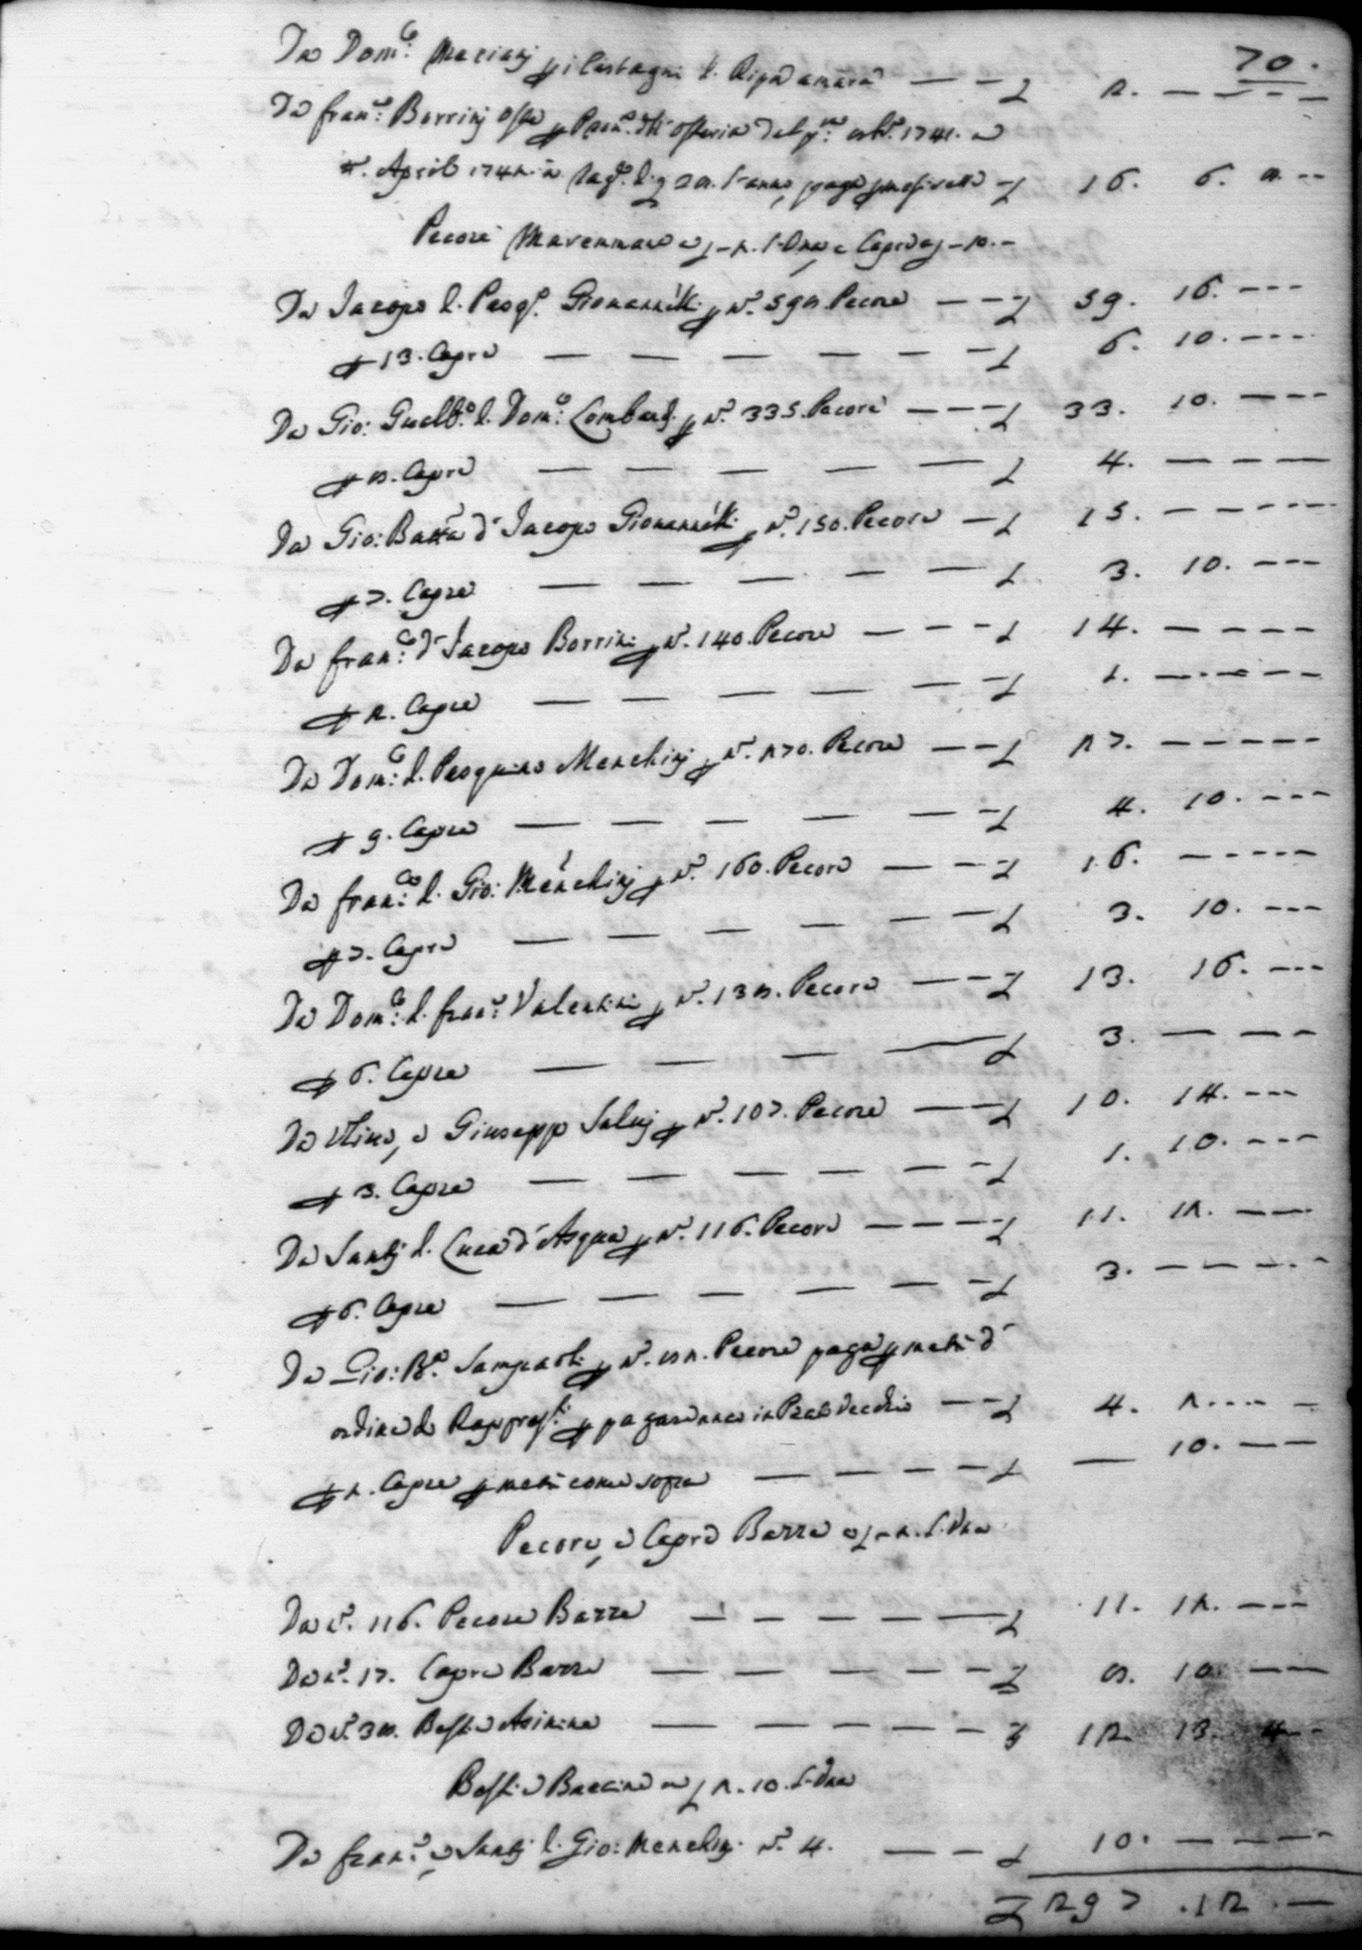 70.
Da Dom:co Marianj p i Castagni di Ripa amara — — £ 2. — — — —
Da Fran:co Borrinj Oste p Pron:e dell' osteria del p:mo 8bre 1741. a
April 1742. a rag:e di £ 28. l'anno, paga p mesi sette £ 16. 6. 8 — —
Pecore Maremmane a £ – 2. l'Una e Capre a £ – 10. –
Da Jacopo di Pasq:o Giovannetti p n:o 598 Pecore — — — £ 59. 16. — — —
p 13. Capre — — — — — — — £ 6. 10. — — —
Da Gio: Guelf:o di Dom:co Lombard: p n:o 335. Pecore — — — £ 33. 10. — — —
p 8. Capre — — — — — £ 4. — — —
Da Gio: Batta d' Jacopo Giovannetti p n:o 150. Pecore — £ 15. — — — — —
p 7. Capre — — — — — £ 3. 10. — — —
Da Fran:co d' Jacopo Borrini p n:o 140. Pecore — — — £ 14. — — — —
p 2. Capre — — — — — — £ 1. — — — — —
Da Dom:co di Pasquino Menchinj p n:o 270. Pecore — — £ 27. — — — — —
p 9. Capre — — — — — — £ 4. 10. — — —
Da Fran:co di Gio: Menchinj p n:o 160. Pecore — — — £ 16. — — — — —
p 7. Capre — — — — — — £ 3. 10. — — —
Da Dom:co di Fran:co Valentini p n:o 138. Pecore — — — £ 13. 16. — — —
p 6. Capre — — — — £ 3. — — —
Da Vlivo, e Giuseppe Salvj p n:o 107. Pecore — — £ 10. 14. — — —
p 3. Capre — — — — — — £ 1. 10. — — —
Da Santj di Luca d' Asqua p n:o 116. Pecore — — — — £ 11. 12. — —
p 6. Capre — — — — — — £ 3. — — — — —
Da Gio: B:a Sampaoli p n:o 82. Pecore paga p metà d'
ordine de Rappres:ti p pagarne in Prato vecchio — — £ 4. 2. — — — —
p 2. Capre p metà come sopra — — — — — £ — 10. — —
Pecore, e Capre Barre a £ – 2. l'Una
Da n:o 116. Pecore Barre — — — — — £ 11. 12. — — —
Da n:o 17. Capre Barre — — — — — — £ 8. 10. — —
Da n:o 38. Bestie Asinine — — — — — — £ 12. 13. 4 — —
Bestie Baccine a £ 2. 10. l'Una
Da Fran:co, e Santj di Gio: Menchinj n:o 4. — — £ 10. — — — —
£ 297. 12. —